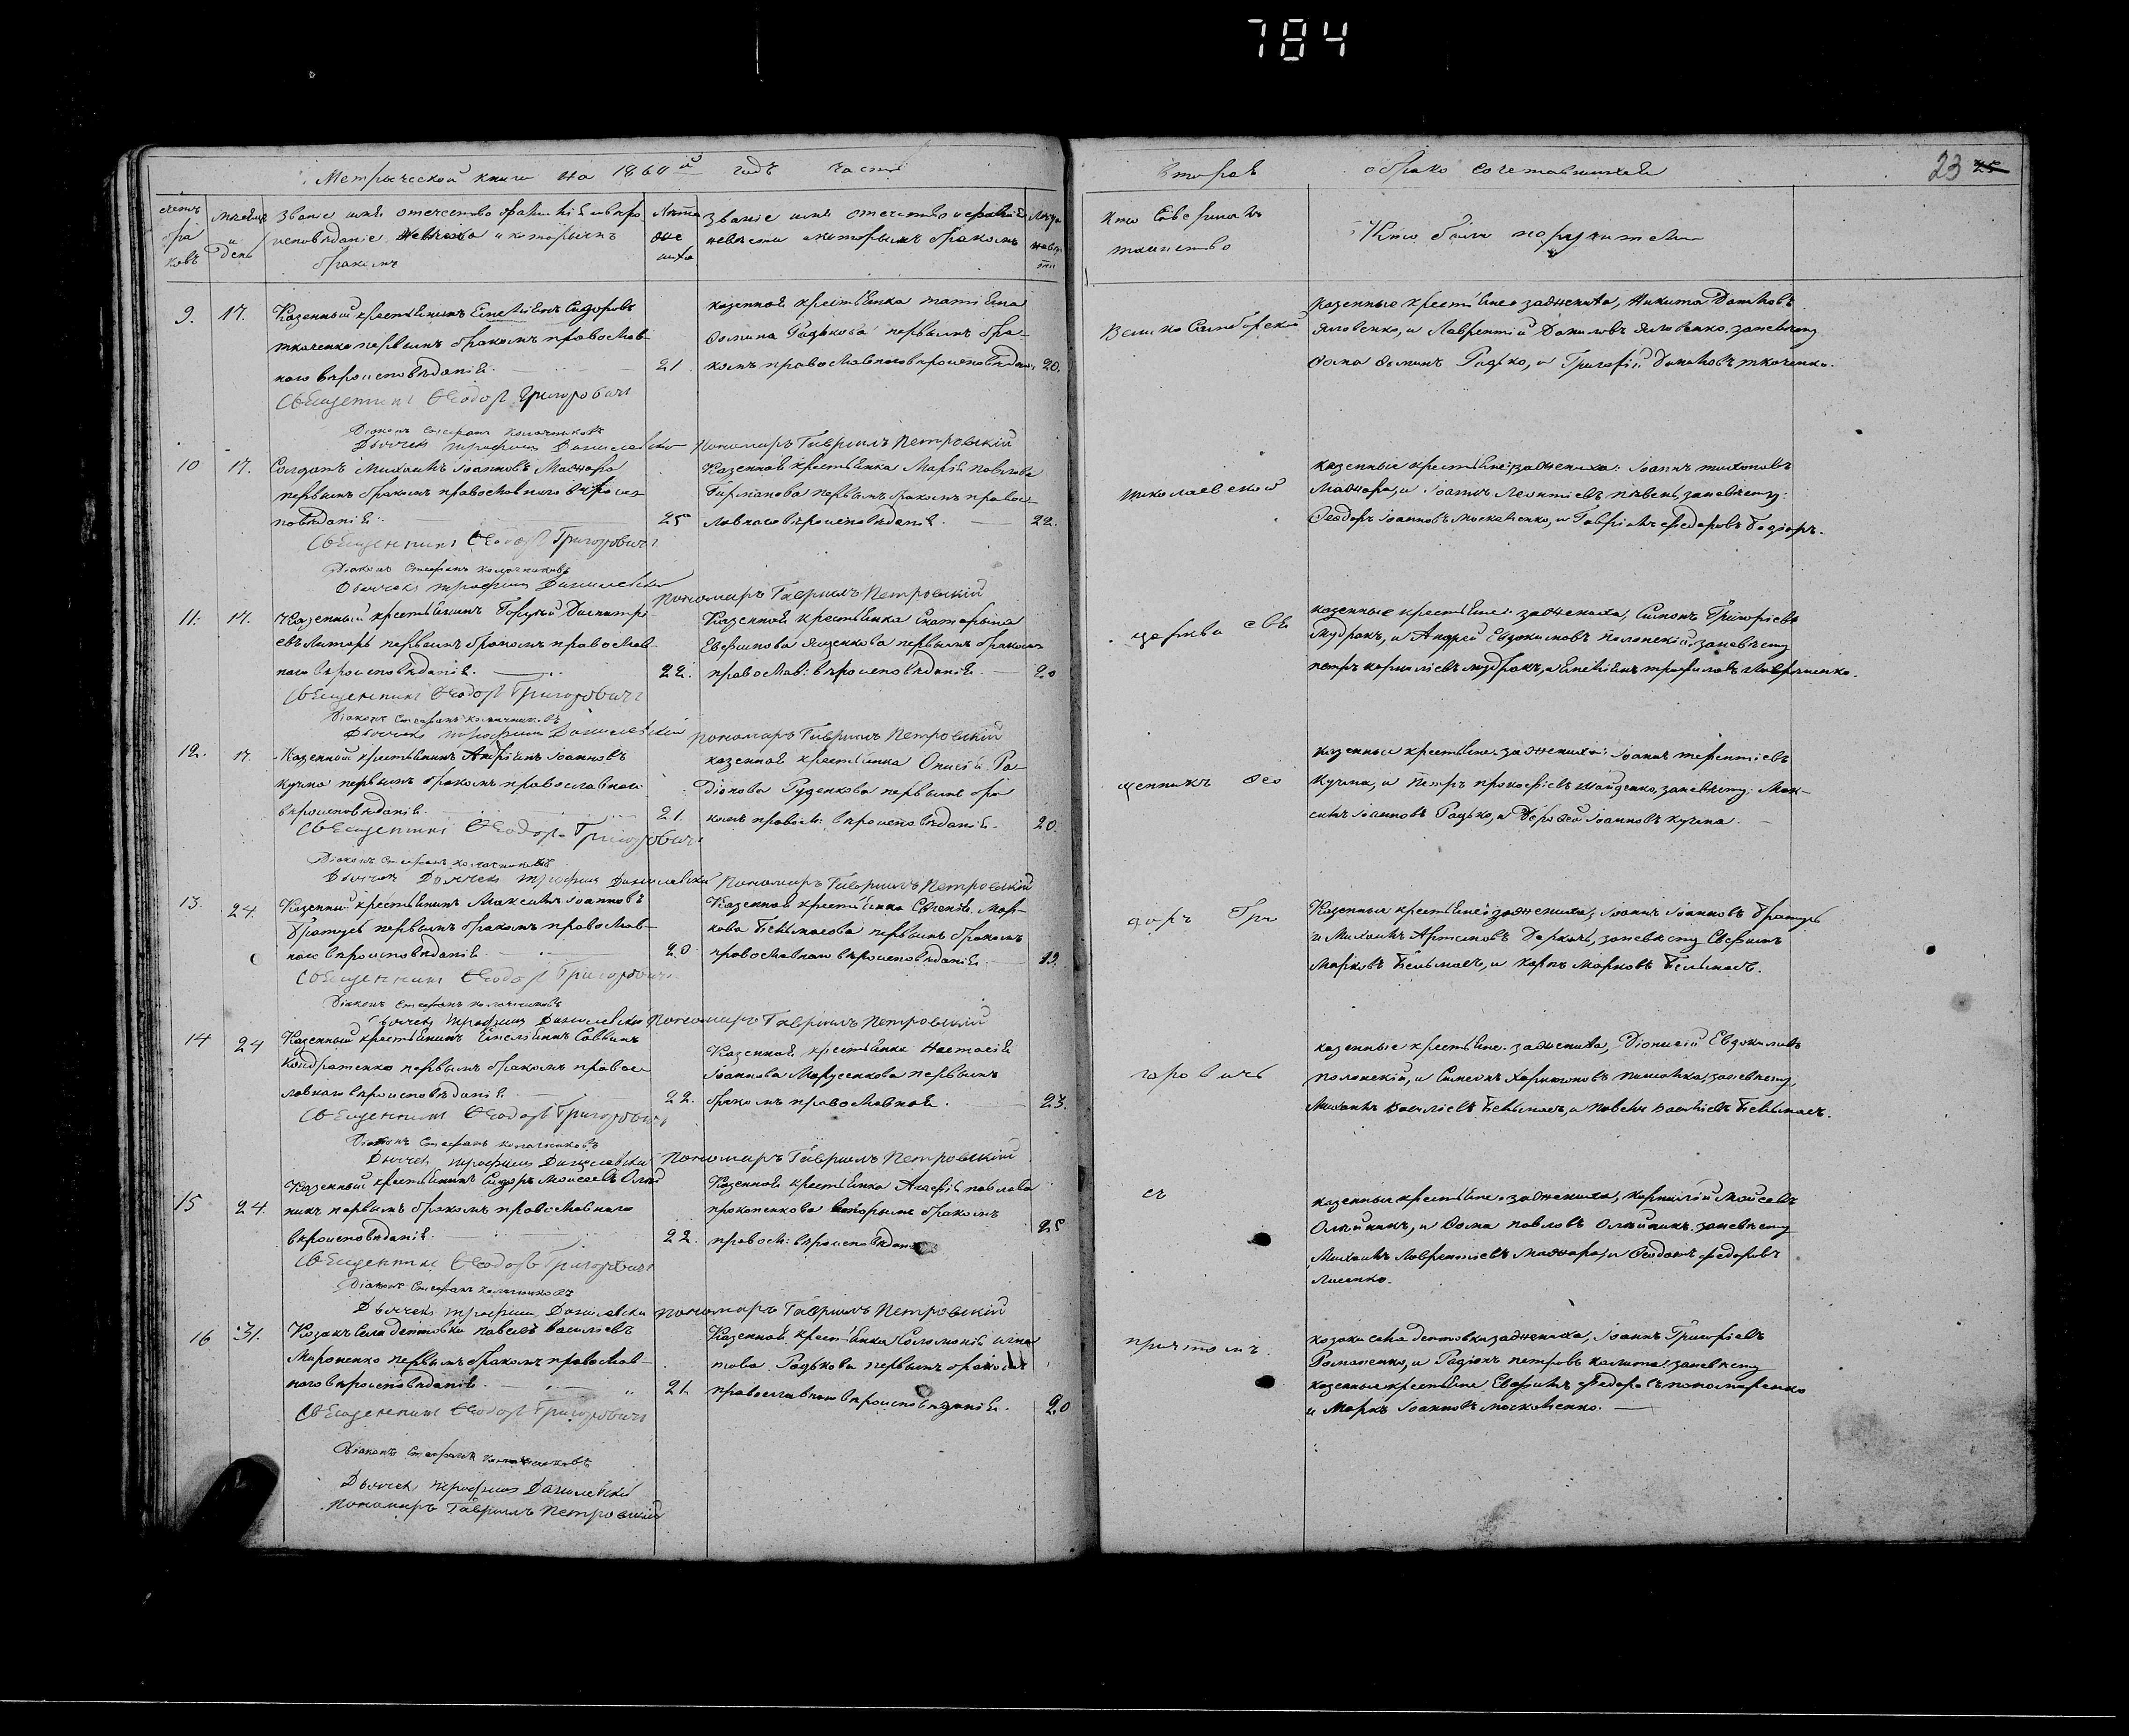 784
Метрической книги на 1860й годъ часть
второй о бракосочетавшихся
23 25
счетъ браковъ
мѣсяцъ и день
Званіе имя отечество фамилія и вѣроисповѣданіе жениха и которымъ бракомъ
Лѣта жениха
Званіе имя отечество и фамилія невѣсты и которымъ бракомъ
Лѣта невѣсты
Кто совершалъ таинство
Кто были поручители
9. 17.
Казенный крестьянинъ Емеліянъ Сидоровъ
ткаченко первымъ бракомъ православ-
наго вѣроисповѣданія. 21.
казенная крестьянка татіяна
Фомина Радькова первымъ бра-
комъ православнаго вѣроисповѣданія 20.
казенные крестьяне: за жениха, Никита
Яловенко, и Лаврентій Даниловъ Яловенко. за невѣсту
Фома Фоминъ Радько, и Григорій ткаченко.
Священникъ Феодоръ Григоровичъ
Діаконъ Стефанъ
Дьячекъ Трофимъ Данилевскій
Пономарь Гавріилъ Петровскій
10 17.
Солдатъ Михаилъ Іоанновъ Маджара
первымъ бракомъ православнаго вѣроис-
повѣданія: 25
Казенная крестьянка Марія Павлова
первымъ бракомъ правос-
лавнаго вѣроисповѣданія. 22.
казенные крестьяне: за жениха: Іоаннъ
Маджара, и Іоаннъ Леонтіевъ за невѣсту:
Феодоръ Іоанновъ Москаленко, и Гавріилъ Федоровъ
Священникъ Феодоръ Григоровичъ
Діаконъ Стефанъ
Дьячекъ Трофимъ Данилевскій
Пономарь Гавріилъ Петровскій
11. 17.
Казенный крестьянинъ Георгій Димитрі-
евъ первымъ бракомъ православ-
наго вѣроисповѣданія. 22.
Казенная крестьянка Екатерина
первымъ бракомъ
православ: вѣроисповѣданія. 20
казенные крестьяне: за жениха, Симонъ Григоріевъ
Мудракъ, и Андрей Евдокимовъ полонскій; за невѣсту
петръ корниліевъ мудракъ, и Емеліянъ трофимовъ
Священникъ Феодоръ Григоровичъ
Діаконъ Стефанъ
Дьячекъ Трофимъ Данилевскій
Пономарь Гавріилъ Петровскій
12. 17.
Казенный крестьянинъ Іоанновъ
кучма первымъ бракомъ православнаго
вѣроисповѣданія. 21.
казенная крестьянка Онисія Ра-
діонова Руденкова первымъ бра-
комъ правосл: вѣроисповѣданія. 20.
казенные крестьяне. за жениха: Іоаннъ терентіевъ
Кучма, и Петръ прокофіевъ за невѣсту: Мак-
симъ Іоанновъ Радько, и Дорофей Іоанновъ кучма.
Священникъ Феодоръ Григоровичъ
Діаконъ Стефанъ
Дьячекъ Дьячекъ Трофимъ Данилевскій
Пономарь Гавріилъ Петровскій
13. 24.
Казенный крестьянинъ Максимъ Іоанновъ
первымъ бракомъ православ-
наго вѣроисповѣданія. 20
Казенная крестьянка Мар-
кова Бельмасова первымъ бракомъ
православнаго вѣроисповѣданія. 19.
Казенные крестьяне: за жениха, Іоаннъ Іоанновъ
и Михаилъ Артемовъ Деркачь, за невѣсту
Марковъ Бельмасъ, и Карпъ Марковъ Бельмасъ.
Священникъ Феодоръ Григоровичъ
Діаконъ Стефанъ
Дьячекъ Трофимъ Данилевскій
Пономарь Гавріилъ Петровскій
14 24
Казенный крестьянинъ Емеліянъ Саввинъ
Кондратенко первымъ бракомъ правос-
лавнаго вѣроисповѣданія 22.
Казенная крестьянка Настасія
Іоаннова Марусенкова первымъ
бракомъ православная. 23.
казенные крестьяне. за жениха, Діонисій Евдокимовъ
полонскій, и Симеонъ Харитоновъ за невѣсту
Михаилъ Василіевъ Бельмасъ, и Павелъ Василіевъ Бельмасъ.
Священникъ Феодоръ Григоровичъ
Діаконъ Стефанъ
Дьячекъ Трофимъ Данилевскій
Пономарь Гавріилъ Петровскій
15 24.
Казенный крестьянинъ Сидоръ Моисеевъ Олѣй-
никъ первымъ бракомъ православнаго
вѣроисповѣданія. 22.
Казенная крестьянка павлова
прокопенкова вторымъ бракомъ
правосл: вѣроисповѣданія 25
казенные крестьяне. за жениха, Корнилій Моисеевъ
Олѣйникъ, и Фома павловъ Олѣйникъ. за невѣсту
Михаилъ Лаврентіевъ маджара, и Федоровъ
Лисенко.
Священникъ Феодоръ Григоровичъ
Діаконъ Стефанъ
Дьячекъ Трофимъ Данилевскій
Пономарь Гавріилъ Петровскій
16 31.
Козакъ села дептовки павелъ василіевъ
Мироненко первымъ бракомъ православ-
наго вѣроисповѣданія. 21.
Казенная крестьянка Соломонія игна-
това Радькова первымъ бракомъ
православнаго вѣроисповѣданія. 20
козаки села дептовки за жениха, Іоаннъ Григоріевъ
Романенко, и Радіонъ петровъ за невѣсту
казенные крестьяне, Федоровъ пономаренко
и Марко Іоанновъ москаленко.
Священникъ Феодоръ Григоровичъ
Діаконъ Стефанъ
Дьячекъ Трофимъ Данилевскій
Пономарь Гавріилъ Петровскій
николаевской
церкви свя
щенникъ Фео
доръ Гри
горовичъ
съ
причтомъ.